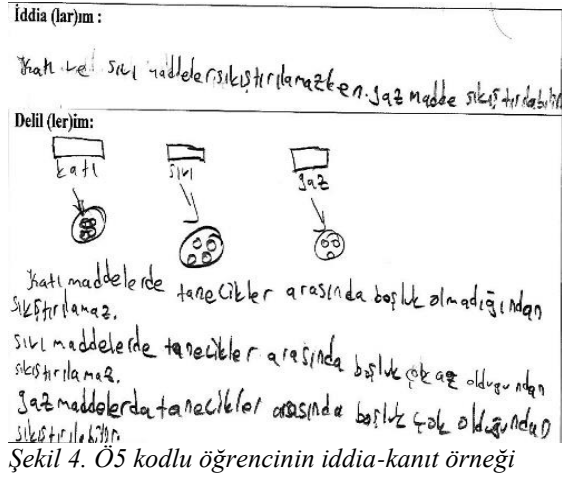 İddia (lar)ım :
Katı ve sıvı maddeler sıkıştırılamazken. gaz madde sıkıştırılabilir
Delil (ler)im:
katı sıvı gaz
Katı maddelerde tanecikler arasında boşluk olmadığından
sıkıştırılamaz.
sıvı maddelerde tanecikler arasında boşluk çok az olduğundan
sıkıştırılamaz.
gaz maddelerda tanecikler arasında boşluk çok olduğundan
sıkıştırılabilir.
Şekil 4. Ö5 kodlu öğrencinin iddia-kanıt örneği